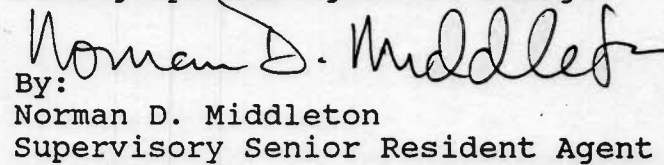 Norman D. Middleton
By:
Norman D. Middleton
Supervisory Senior Resident Agent